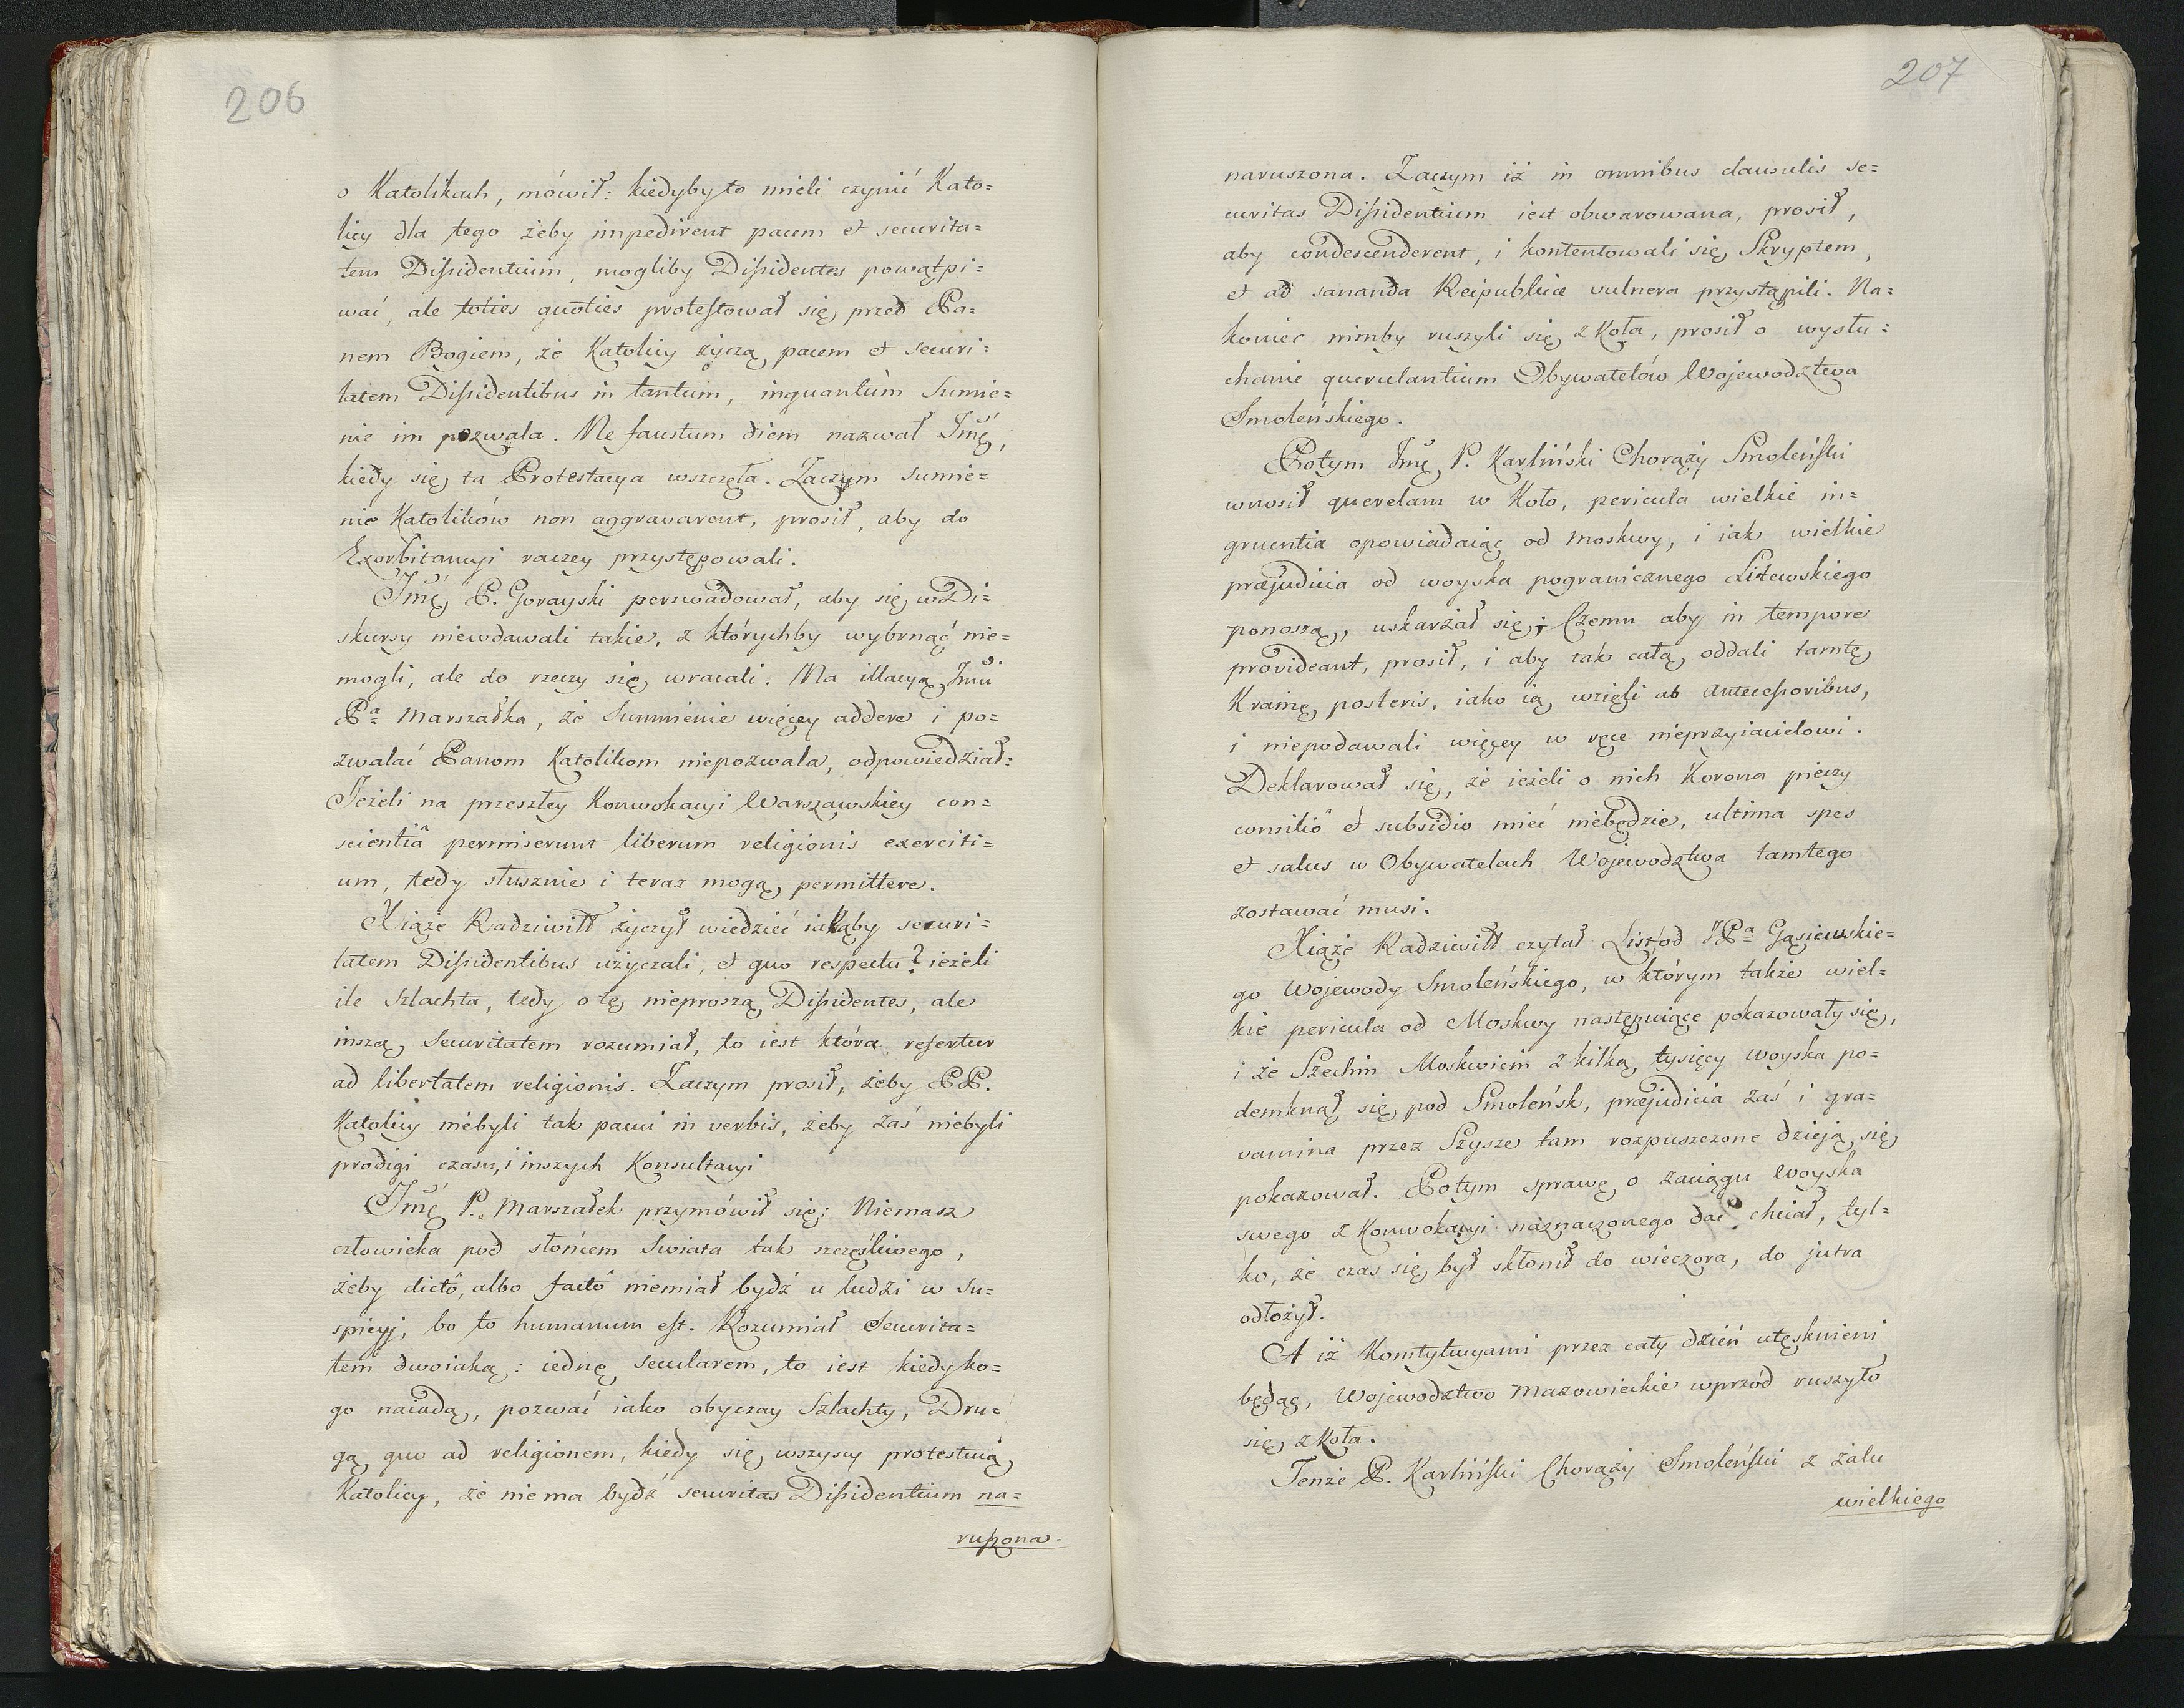 206
o Katolikach, mówił: kiedyby to mieli czynić Kato=
licy dla tego żeby impedirent pacem et securita=
tem Dißidentium, mogliby Dißidentes powątpi=
wać, ale toties quoties protestował się przed Pa=
nem Bogiem, że Katolicy życzą pacem et securi=
tatem Dißidentibus in tantum, inquantum Sumie=
nie im pozwala. Ne faustum diem nazwał Jmć,
kiedy się ta Protestacya wszczęła. Zaczym sumie=
nie Katolików non aggravarent, prosił, aby do
Exorbitancyi raczey przystępowali.
Jmć P. Gorayski perswadował, aby się w Di=
skursy niewdawali takie, z którychby wybrnąć nie=
mogli, ale do rzeczy się wracali. Na illacyą Jmci
Pa Marszałka, że Summienie więcey addere i po=
zwalać Panom Katolikom niepozwala, odpowiedział:
Jeżeli na przeszłey Konwokacyi Warszawskiey con=
scientiâ permiserunt liberum religionis exerciti=
um, tedy słusznie i teraz mogą permittere.
Xiąże Radziwiłł życzył wiedzieć iakąby securi=
tatem Dißidentibus użyczali, et quo respectu? ieżeli
ile szlachta, tedy o tę nieproszą Dißidentes, ale
inszą Securitatem rozumiał, to iest która refertur
ad libertatem religionis. Zaczym prosił, żeby PP.
Katolicy niebyli tak pauci in verbis, żeby zaś niebyli
prodigi czasu, i inszych Konsultacyi
Jmć P. Marszałek przymówił się: Niemasz
człowieka pod słońcem Swiata tak szczęśliwego,
żeby dictô, albo factô niemiał bydź u ludzi w su=
spicyj, bo to humanum est. Rozumiał Securita=
tem dwoiaką: iednę secularem, to iest kiedy ko=
go naiadą, pozwać iako obyczay Szlachty, Dru=
gą quo ad religionem, kiedy się wszyscy protestuią
Katolicy, że nie ma bydź securitas Dißidentium na=
rußona.
207
naruszona. Zaczym iż in omnibus clausulis se=
curitas Dißidentium iest obwarowana, prosił,
aby condescenderent, i kontentowali się Skryptem,
et ad sananda Reipublicæ vulnera przystąpili. Na=
koniec nimby ruszyli się z Koła, prosił o wysłu=
chanie querulantium Obywatelów Wojewodztwa
Smoleńskiego.
Potym Jmć P. Karliński Chorąży Smoleński
wnosił querelam w Koło, pericula wielkie in=
gruentia opowiadaiąc od Moskwy, i iak wielkie
præjudicia od woyska pogranicznego Litewskiego
ponoszą, uskarżał się; Czemu aby in tempore
provideant, prosił, i aby tak całą oddali tamtę
Krainę posteris, iako ią wzięli ab Anteceßoribus,
i niepodawali więcey w ręce nieprzyiacielowi.
Deklarował się, że ieżeli o nich Korona pieczy
consiliô et subsidio mieć niebędzie, ultima spes
et salus w Obywatelach Wojewodztwa tamtego
zostawać musi.
Xiąże Radziwiłł czytał List od JPa Gąsiewskie=
go Wojewody Smoleńskiego, w którym także wiel=
kie pericula od Moskwy następuiące pokazowały się,
i że Szechin Moskwicin z kilką tysięcy woyska po=
demknął się pod Smoleńsk, præjudicia zaś i gra=
vamina przez Szysze tam rozpuszczone dzieją się
pokazował. Potym sprawę o zaciągu Woyska
swego z Konwokacyi náznaczonego dać chciał, tyl=
ko, że czas się był skłonił do wieczora, do jutra
odłożył.
A iż Konstytucyami przez cały dzień utęsknieni
będąc, Wojewodztwo Mazowieckie wprzód ruszyło
się z Koła.
Tenże P. Karliński Chorąży Smoleński z żalu
wielkiego